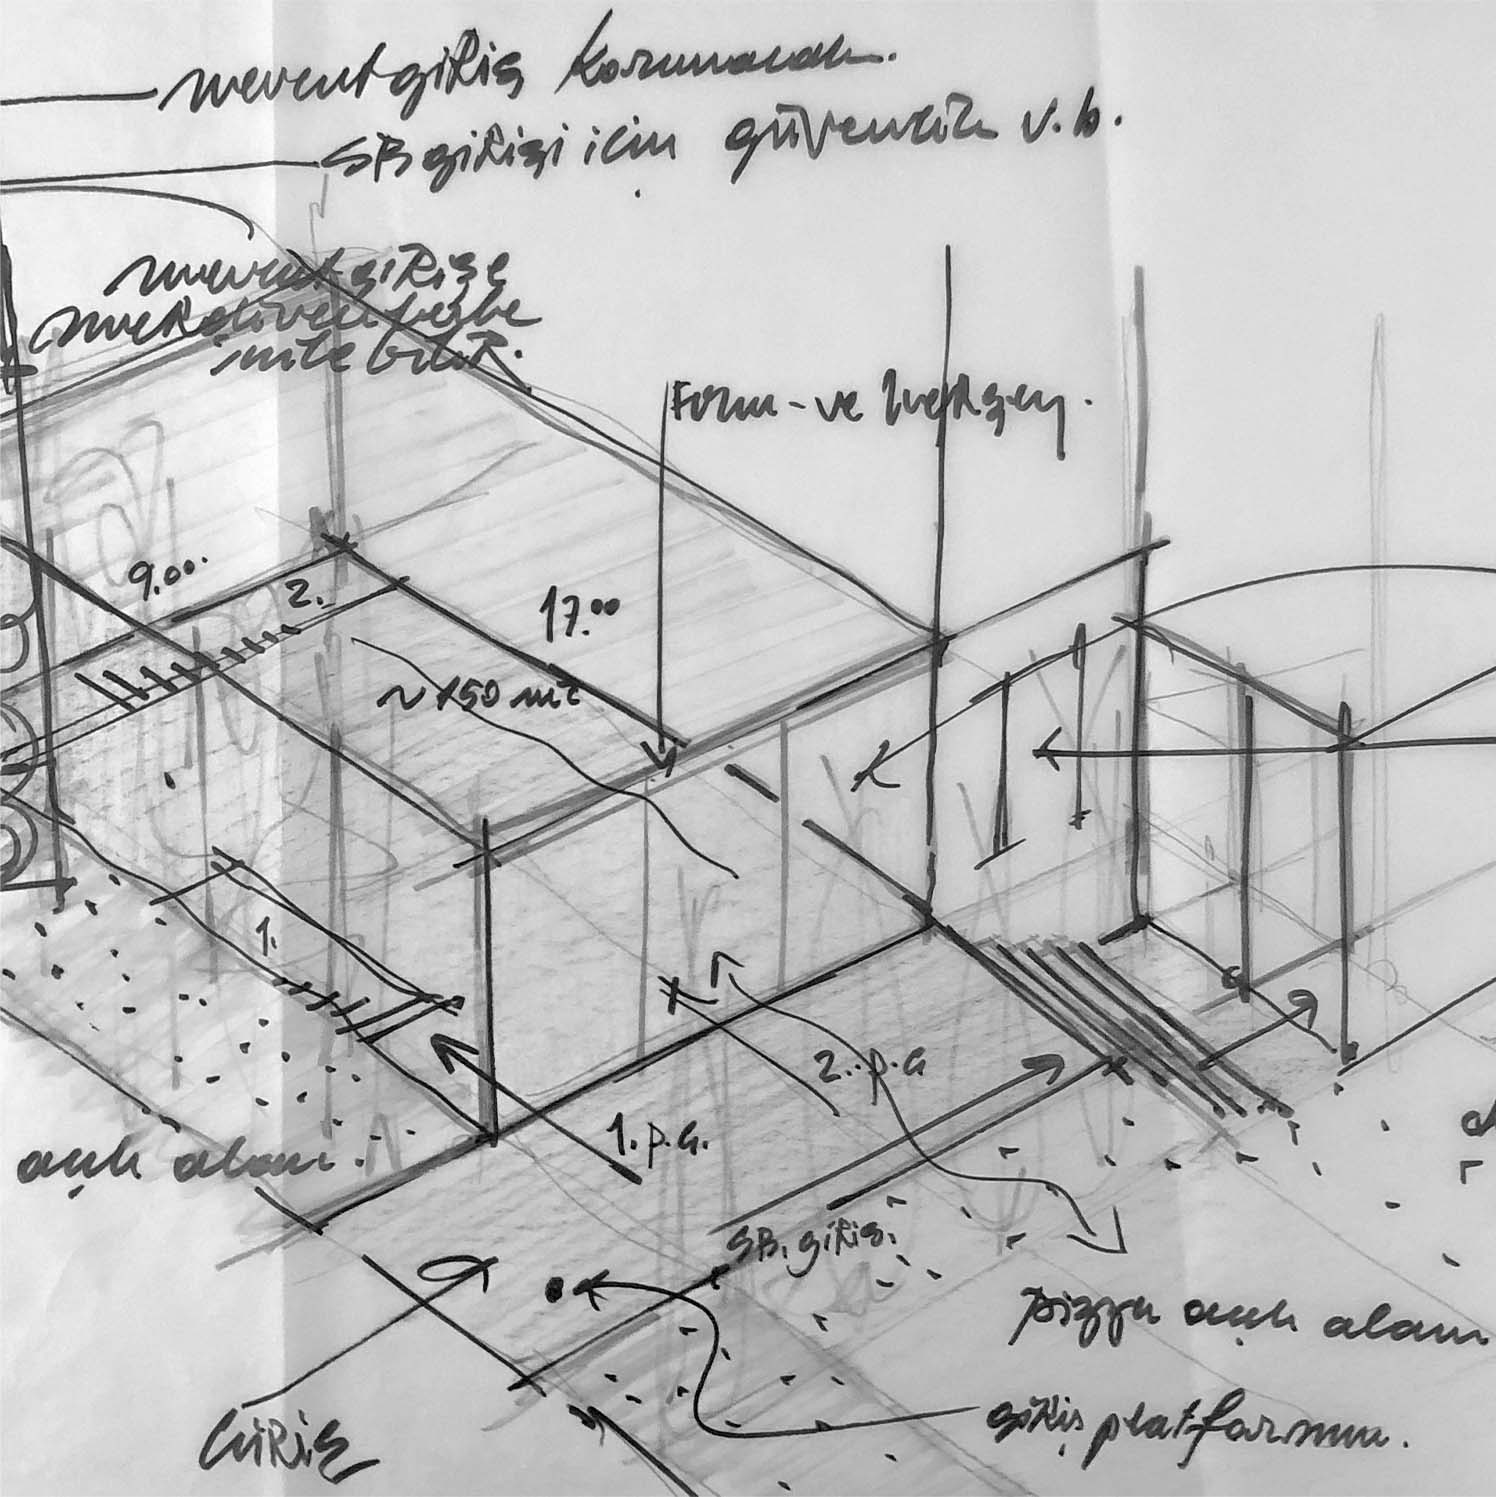 mevcut giriş korunacak.
SB girişi için güvenlik v.b.
mevcut girişe
merdivenle
inilebilir.
Form - ve
9.00
2.
17.00
~ 150 m2
1.
2. p.a
1. p.a.
açık alan.
SB. giriş.
pizza açık alanı
giriş platformu.
Giriş